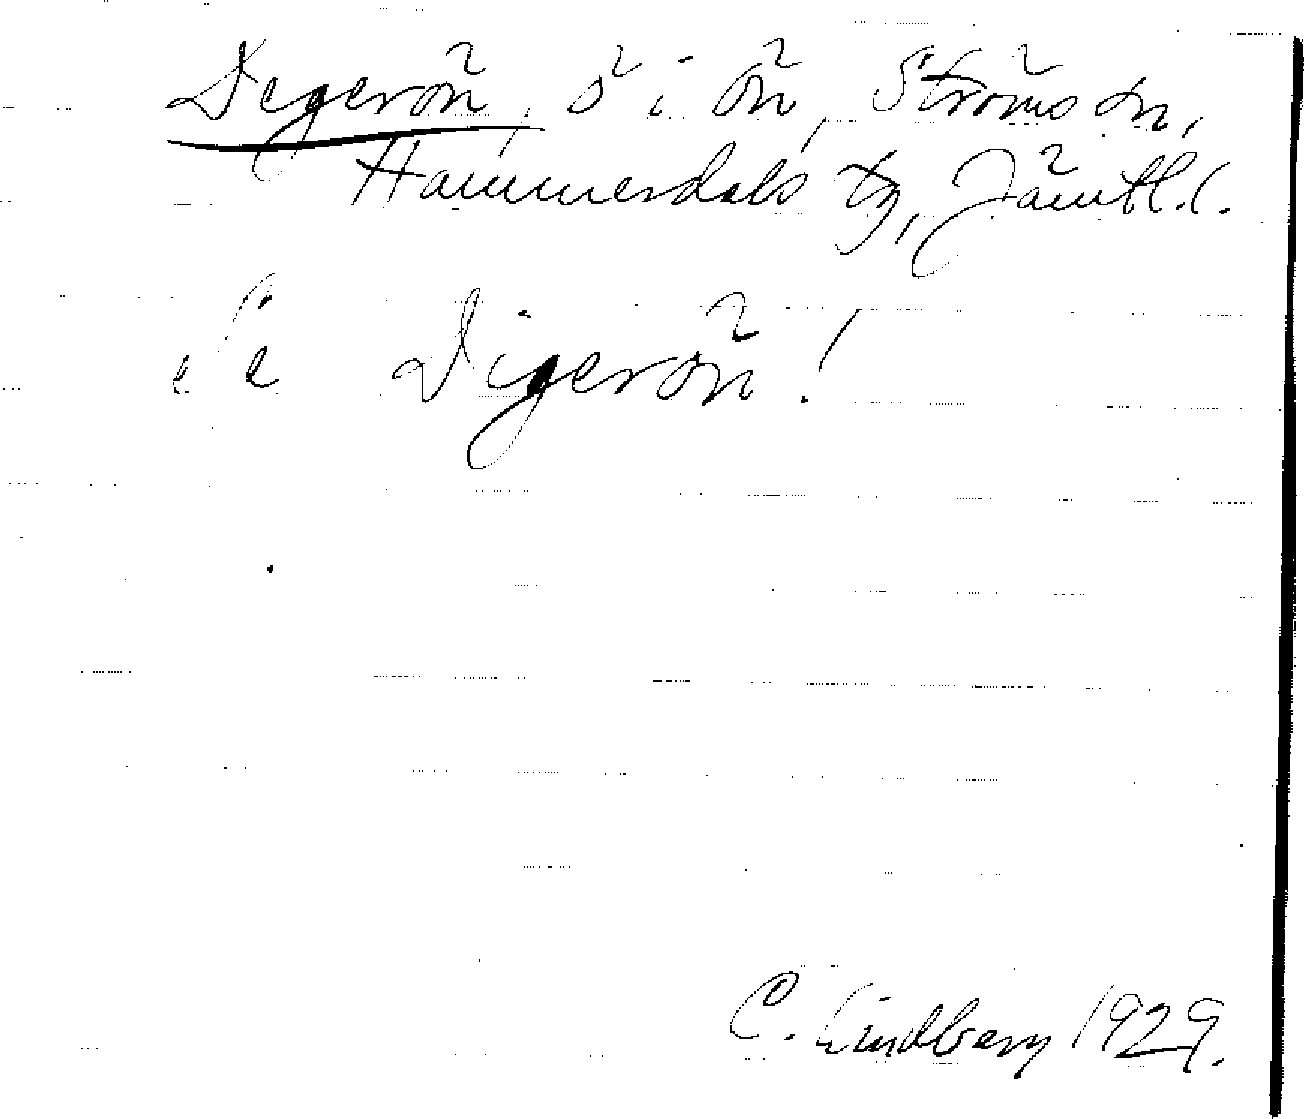 Degerön, ö i ön, Ströms sn,
Hammerdals tg, Jämtl. l.
Se Digerön!
C. Lindberg 1929.